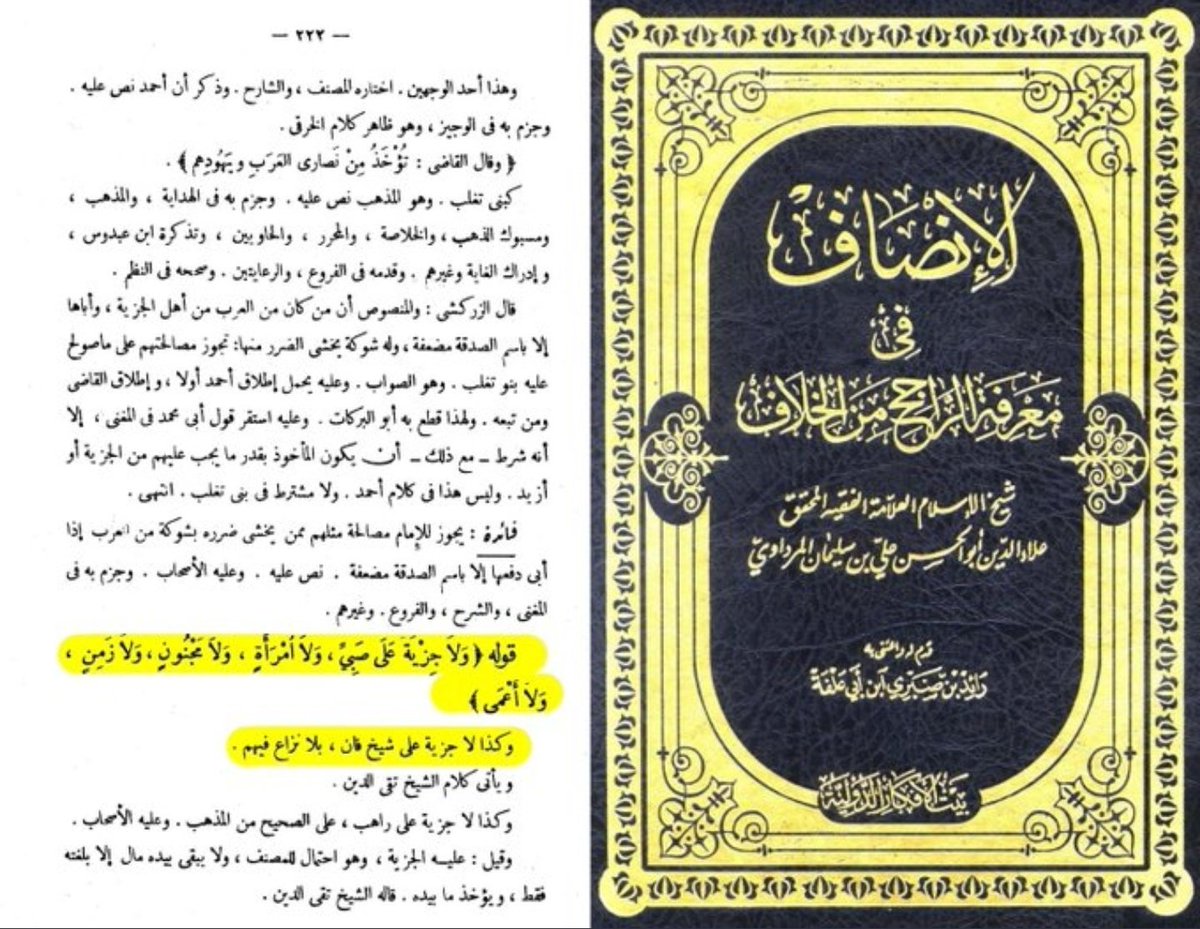 — ٢٢٣ —
وهذا أحد الوجهين . اختاره المصنف ، والشارح . وذكر أن أحمد نص عليه .
وجزم به فى الوجيز ، وهو ظاهر كلام الخرقى .
﴿ وقال القاضى : تُؤْخَذُ مِنْ نَصارى العَرَبِ ويَهُودِهم ﴾ .
كبنى تغلب . وهو المذهب نص عليه . وجزم به فى الهداية ، والمذهب ،
ومسبوك الذهب ، والخلاصة ، والمحرر ، والحاويين ، وتذكرة ابن عبدوس ،
و إدراك الغاية وغيرهم . وقدمه فى الفروع ، والرعايتين . وصححه فى النظم .
قال الزركشى : والمنصوص أن من كان من العرب من أهل الجزية ، وأباها
إلا باسم الصدقة مضعفة ، وله شوكة يخشى الضرر منها: تجوز مصالحتهم على ماصولح
عليه بنو تغلب . وهو الصواب . وعليه يحمل إطلاق أحمد أولا ، و إطلاق القاضى
ومن تبعه . ولهذا قطع به أبو البركات . وعليه استقر قول أبى محمد فى المغنى ، إلا
أنه شرط ــ مع ذلك ــ أن يكون المأخوذ بقدر ما يجب عليهم من الجزية أو
أزيد . وليس هذا فى كلام أحمد . ولا مشترط فى بنى تغلب . انتهى .
فائدة : يجوز للإمام مصالحة مثلهم ممن يخشى ضرره بشوكة من العرب إذا
أبى دفعها إلا باسم الصدقة مضعفة . نص عليه . وعليه الأصحاب . وجزم به فى
المغنى ، والشرح ، والفروع . وغيرهم .
قوله ﴿ وَلاَ جِزْيَةَ عَلَى صَبِيٍّ ، وَلاَ امْرَأَةٍ ، وَلاَ مَجْنُونٍ ، وَلاَ زَمِنٍ ،
وَلاَ أَعْمَى ﴾
وكذا لا جزية على شيخ فان ، بلا نزاع فيهم .
و يأتى كلام الشيخ تقى الدين .
وكذا لا جزية على راهب ، على الصحيح من المذهب . وعليه الأصحاب .
وقيل : عليه الجزية ، وهو احتمال للمصنف ، ولا يبقى بيده مال إلا بلغته
فقط ، ويؤخذ ما بيده . قاله الشيخ تقى الدين .
الإِنْصَافُ
فِي
مَعْرِفَةِ الرَّاجِحِ مِنَ الخِلَافِ
شيخ الإسلام العلامة الفقيه المحقق
علاء الدين أبو الحسن علي بن سليمان المرداويّ
قدم له واعتنى به
رَائِد بْن صَبْرِي ابْن أَبِي عَلْفَةَ
بَيْتُ الأَفْكَارِ الدَّوْلِيَّة